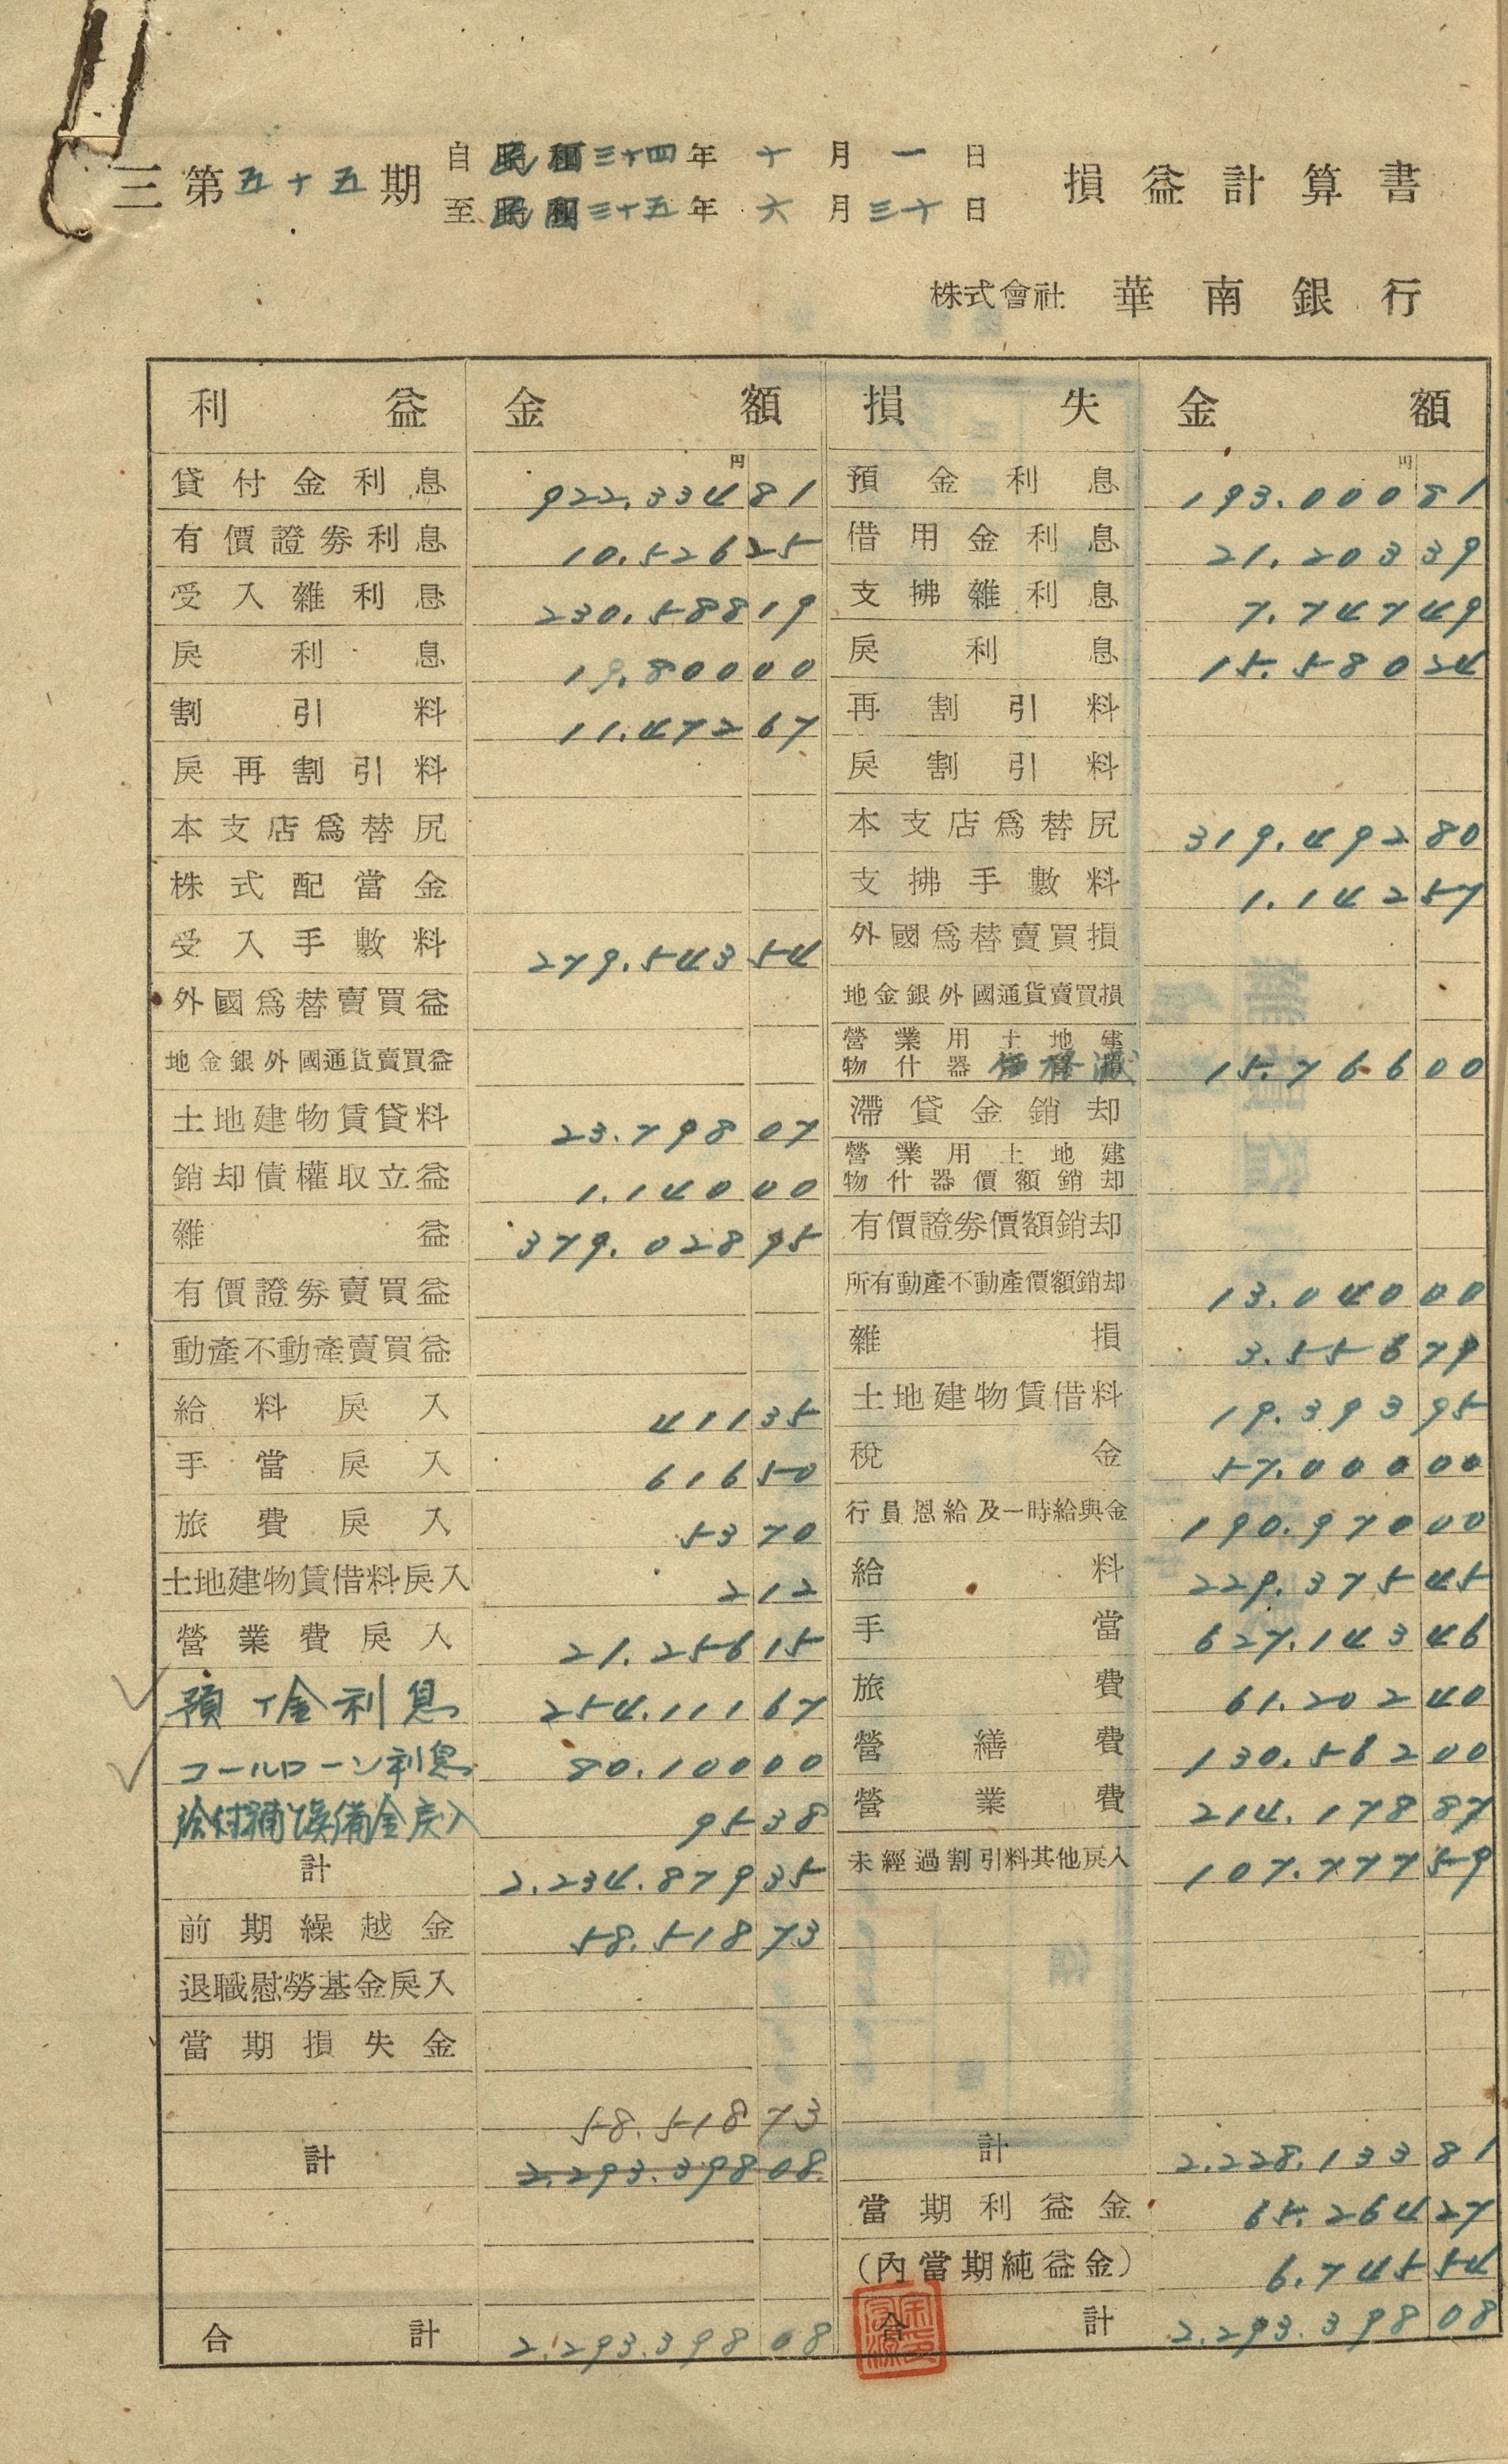 三 第五十五期 自 民國三十四年 十 月 一 日
至 民國三十五年 六 月 三十 日
損益計算書
株式會社 華南銀行
利益 金額 損失 金額
貸付金利息 円 922.334 81 預金利息 円 193.000 81
有價證券利息 10.526 25 借用金利息 21.203 39
受入雜利息 230.588 19 支拂雜利息 7.747 49
戾利息 19.800 00 戾利息 15.580 24
割引料 11.472 67 再割引料
戾再割引料 戾割引料
本支店爲替尻 本支店爲替尻 319.492 80
株式配當金 支拂手數料 1.142 57
受入手數料 279.543 54 外國爲替賣買損
外國爲替賣買益 地金銀外國通貨賣買損
地金銀外國通貨賣買益 營業用土地建物什器價格減 15.766 00
土地建物賃貸料 23.798 07 滯貸金銷却
銷却債權取立益 1.140 00 營業用土地建物什器價額銷却
雜益 379.028 95 有價證券價額銷却
有價證券賣買益 所有動產不動產價額銷却 13.040 00
動產不動產賣買益 雜損 3.556 79
給料戾入 411 35 土地建物賃借料 19.393 95
手當戾入 616 50 稅金 57.000 00
旅費戾入 53 70 行員恩給及一時給與金 190.970 00
土地建物賃借料戾入 2 12 給料 229.375 45
營業費戾入 21.256 15 手當 627.143 46
預ケ金利息 254.111 67 旅費 61.202 40
コールローン利息 80.100 00 營繕費 130.562 00
給付補塡備金戾入 95 38 營業費 214.178 87
計 2.234.879 35 未經過割引料其他戾入 107.777 59
前期繰越金 58.518 73
退職慰勞基金戾入
當期損失金
58.518 73
計 2.293.398 08 計 2.228.133 81
當期利益金 65.264 27
(內當期純益金) 6.745 54
合計 2.293.398 08 合計 2.293.398 08